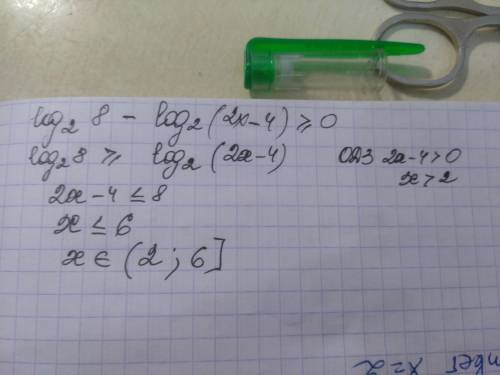 log₂ 8 − log₂(2x−4) ≥ 0
log₂8 ≥ log₂(2x−4) ОДЗ 2x−4>0
x>2
2x−4 ≤ 8
x ≤ 6
x ∈ (2; 6]
x=2